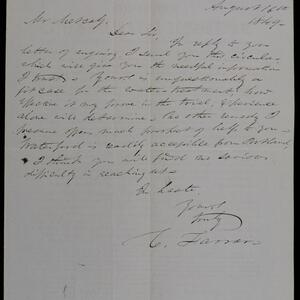 August 16th
1849.
Mr Metcalf
Dear Sir, In reply to your
letter of enquiry I send you this circular
which will give you the needful information
I trust. Yours is unquestionably a
fit case for the water-treatment, how
effective it may prove in the trial, experience
alone will determine. No other remedy I
presume offers much prospect of help to you.
Waterford is easily accessible from Portland,
I think you will find no serious
difficulty in reaching us.
In haste,
Yours
truly
C. Farrar